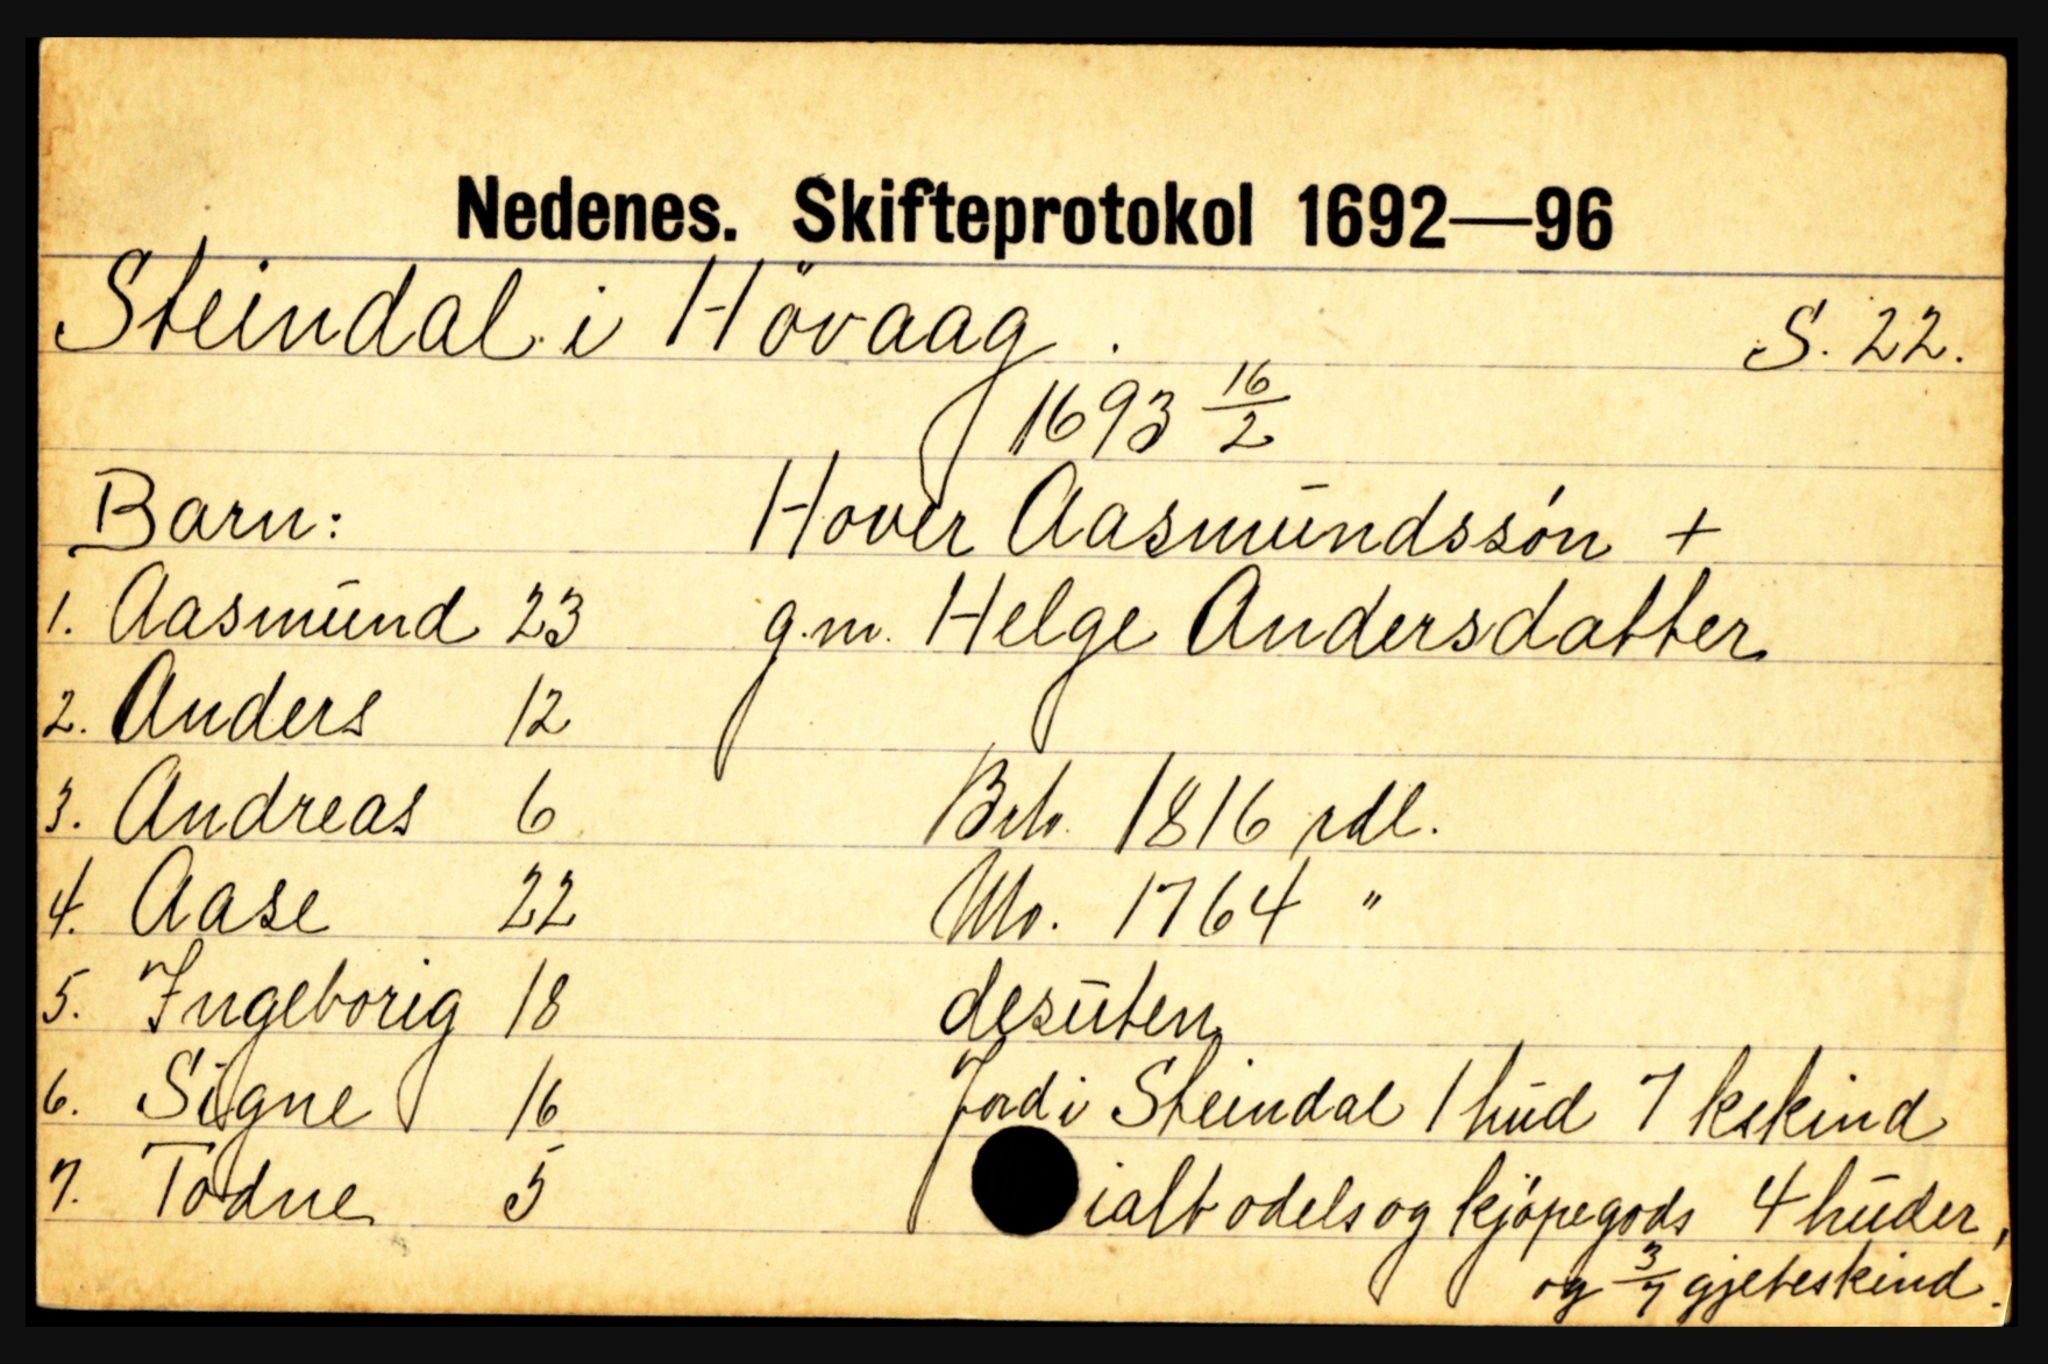 Nedenes. Skifteprotokol 1692—96
Steindal i Hövaag. S. 22.
1693 16/2
Barn: Hover Aasmundssón +
1. Aasmund 23 g.m. Helge Andersdatter
2. Anders 12
3. Andreas 6 Brto. 1816 rdl.
4. Aase 22 Nto. 1764 "
5. Ingeborig 18 desuten
6. Signe 16 Jord i Steindal 1 hud 7 kskind
7. Todne 5 ialt odels og kjöpegods 4 huder,
og 3/7 gjeteskind.